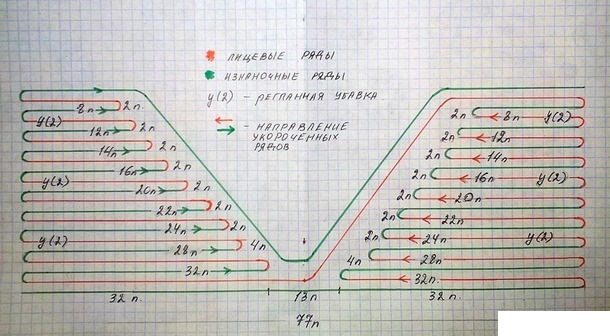 ЛИЦЕВЫЕ РЯДЫ
ИЗНАНОЧНЫЕ РЯДЫ
У(2) - РЕГЛАННАЯ УБАВКА
- НАПРАВЛЕНИЕ
УКОРОЧЕННЫХ
РЯДОВ
8п 2п.
У(2)
12п 2п
14п 2п
16п 2п
У(2)
20п 2п
22п 2п
24п 2п
У(2)
28п 4п
32п
2п 8п У(2)
2п 12п
2п 14п
2п 16п У(2)
2п 20п
2п 22п
2п 24п У(2)
4п 28п
32п
32п. 13п 32п.
77п